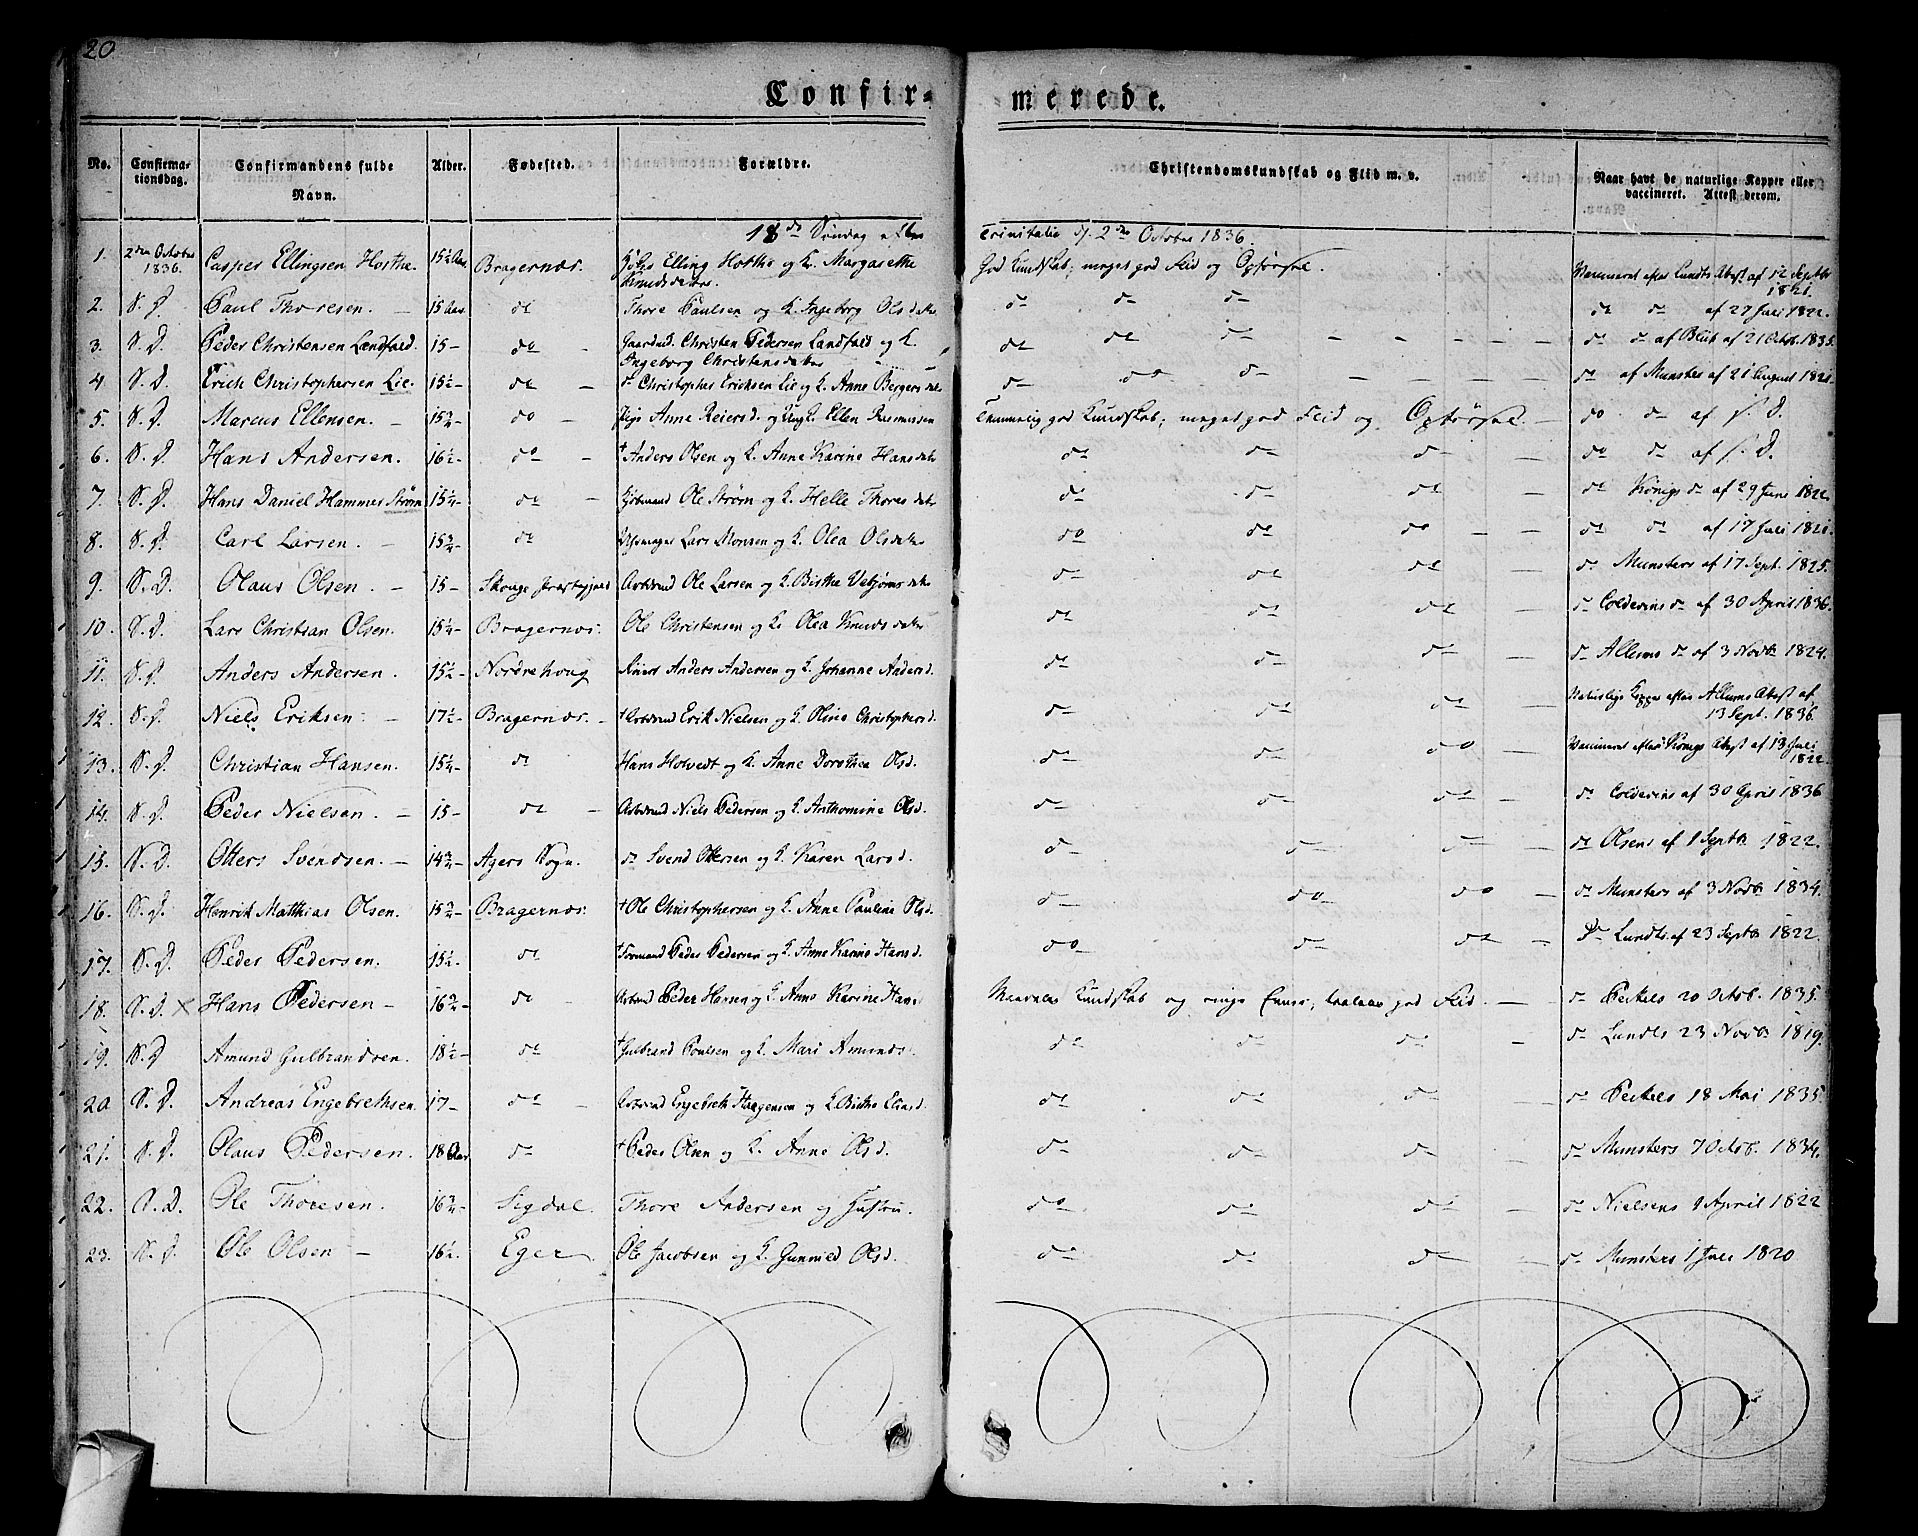 20.
Confir= merede.
No. Confirma-tionsdag. Confirmandens fulde Navn. Alder. Fødested. Forældre. Christendomskundskab og Flid m. v. Naar havt de naturlige Kopper eller vaccineret. Attest derom.
18de Søndag efter Trinitatis d. 2den October 1836.
1. 2den October 1836. Casper Ellingsen Hotthe. 15½ Aar Bragernæs. Elling Hotthe og K. Margarethe Knudsdatter God Kundskab; meget god Flid og Opførsel. Vaccineret efter Lundts Attest af 12 Septbr 1821.
2. S. D. Paul Thoresen. 15 Aar do Thore Paulsen og K. Ingeborg Olsdatter do do do do do af 27 Juli 1822.
3. S. D. Peder Christensen Landfald. 15 do Gaardmd. Christen Pedersen Landfald og K. Ingeborg Christensdatter do do do do do af Blich af 21 Octob. 1835.
4. S. D. Erich Christophersen Lie. 15½ do do Christopher Ericksen Lie og K. Anne Bergersdatter do do do do af Munster af 21 August 1821.
5. S. D. Marcus Ellensen. 15¾ do Pige Anne Reiersd. og Ungk. Ellen Rasmussen Temmelig god Kundskab; meget god Flid og Opførsel. do do af s. D.
6. S. D. Hans Andersen. 16½ do † Anders Olsen og K. Anne Karine Hansdatter do do do do do af s. D.
7. S. D. Hans Daniel Hammer Strøm 15¼ do Kjøbmand Ole Strøm og K. Helle Thoresdatter do do do do Königs do af 29 Juni 1822.
8. S. D. Carl Larsen. 15¾ do Lars Monsen og K. Olea Olsdatter do do do do do af 17 Juli 1821.
9. S. D. Olaus Olsen. 15 Skouge Præstegjeld Arbmd Ole Larsen og K. Birthe Vebjørnsdatter do do do do Munsters af 17 Sept. 1825.
10. S. D. Lars Christian Olsen. 15¼ Bragernæs. Ole Christensen og K. Olea Knudsdatter do do do do Colderins do af 30 April 1836.
11. S. D. Anders Andersen. 15½ Nordrehoug Anders Andersen og K. Johanne Andersd. do do do do Allums do af 3 Novbr 1824.
12. S. D. Niels Eriksen. 17½ Bragernæs. † Arbmd Erik Nielsen og K. Oline Christophersd. do do do Naturlige Kopper efter Allums Attest af 13 Sept. 1836.
13. S. D. Christian Hansen. 15¼ do Hans Holvedt og K. Anne Dorothea Olsd. do do do Vaccineret efter Königs Attest af 13 Juli 1822.
14. S. D. Peder Nielsen. 15 do Arbmd Niels Pedersen og K. Anthomine Olsd. do do do do Colderins af 30 April 1836
15. S. D. Otters Svendsen. 14¾ Agers Sogn. do Svend Ottersen og K. Karen Larsd. do do do do Olsens af 1 Septbr 1822.
16. S. D. Henrik Matthias Olsen. 15¾ Bragernæs. † Ole Christophersen og K. Anne Pauline Olsd. do do do do Munsters af 3 Novbr 1834.
17. S. D. Peder Pedersen. 15½ do † Formand Peder Pedersen og K. Anne Karine Hansd. do do do Do Lundts af 23 Septbr 1822.
18. S. D. × Hans Pedersen 16¾ do Arbmd Peder Hansen og K. Anne Karine Hansd Maadelig Kundskab og ringe Evner, taalelig god Flid. do Peckels 20 Octob. 1835.
19. S. D. Amund Gulbrandsen. 18½ do † Gulbrand Poulsen og K. Mari Amunds. do do do do Lundts 23 Novbr 1819.
20 S. D. Andreas Engebrethsen. 17 do Arbmd Engebreth Haagensen og K. Birthe Eliasd. do do do do Peckels 18 Mai 1835.
21. S. D. Olaus Pedersen. 18 Aar do † Peder Olsen og K. Anne Olsd. do do do do Munsters 7 Octob. 1834.
22. S. D. Ole Thoresen. 16¾ Sigdal. Thore Andersen og Hustru. do do do do Nielsens 1 April 1822
23. S. D. Ole Olsen 16½ Eger Ole Jacobsen og K. Gunnild Olsd. do do do do Munsters 1 Juli 1820